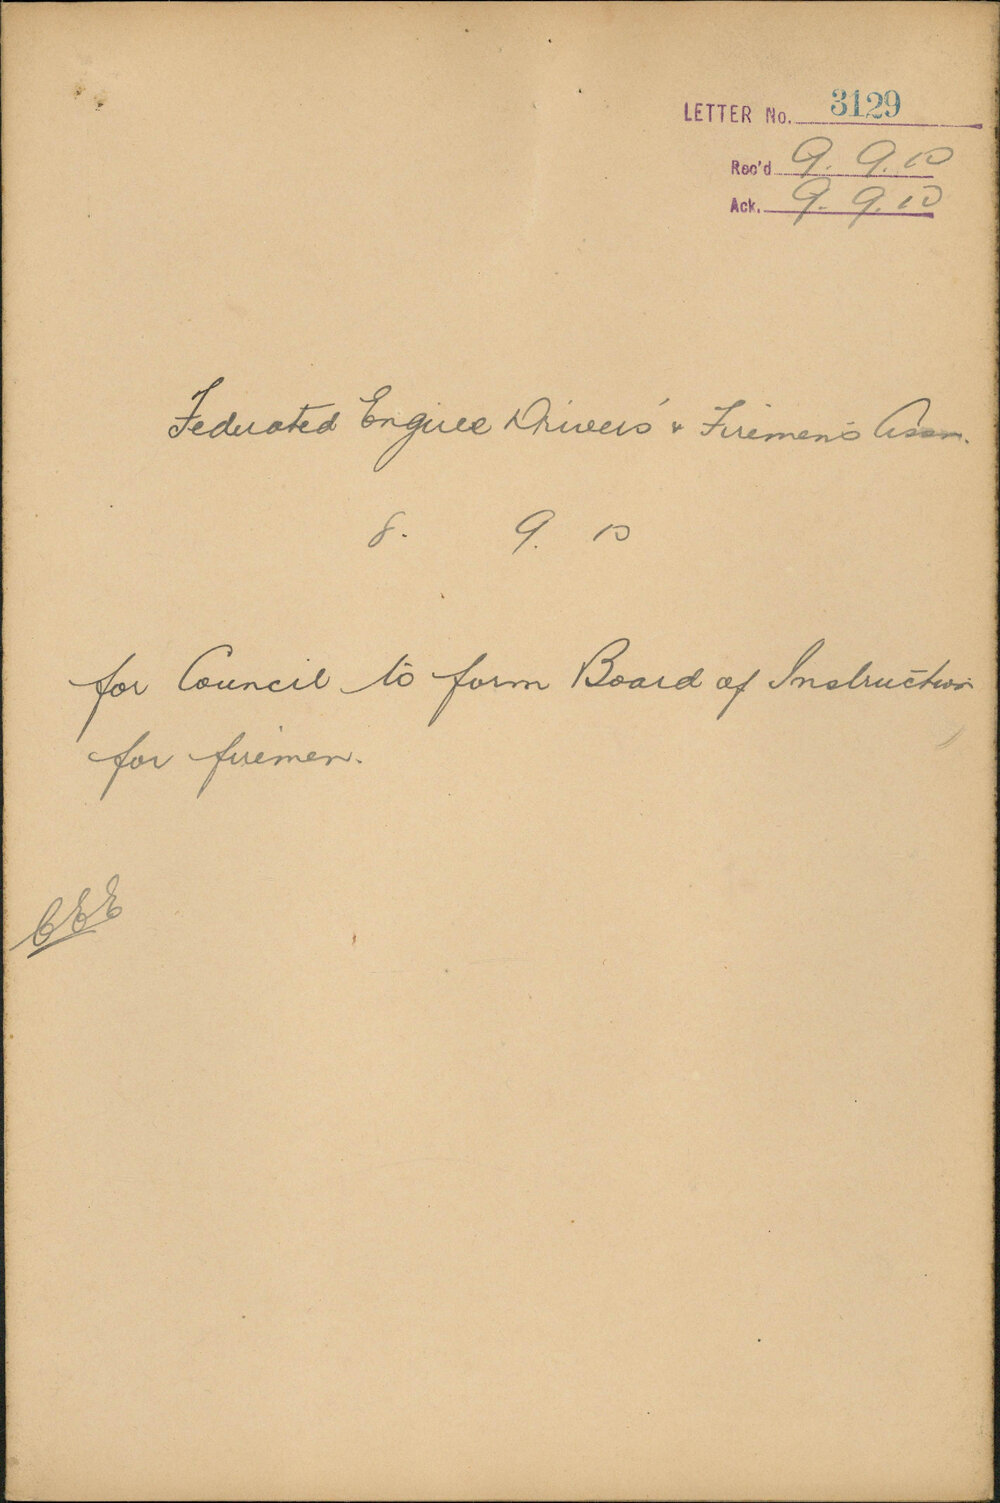 LETTER No. 3129
Rec'd 9. 9. 10
Ack. 9. 9. 10
Federated Engine Drivers' & Firemen's Assn.
8. 9. 10
for Council to form Board of Instruction
for firemen.
CEE